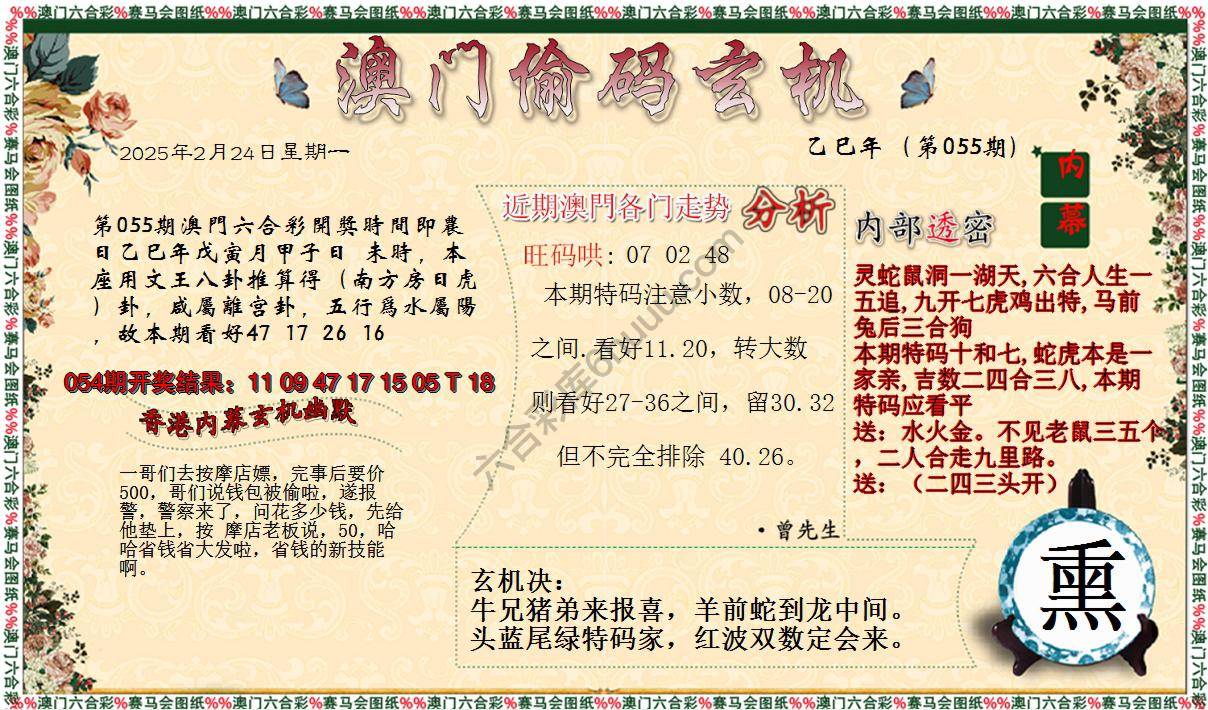 %%澳门六合彩%赛马会图纸%%澳门六合彩%赛马会图纸%%澳门六合彩%赛马会图纸%%澳门六合彩%赛马会图纸%%澳门六合彩%赛马会图纸%%澳门六合彩%赛马会图纸%%
澳门偷码玄机
2025年2月24日星期一
乙巳年（第055期）
内幕
第055期澳門六合彩開獎時間即農
日乙巳年戊寅月甲子日 未時，本
座用文王八卦推算得（南方房日虎
）卦，咸屬離宫卦，五行爲水屬陽
，故本期看好47 17 26 16
054期开奖结果：11 09 47 17 15 05 T 18
香港内幕玄机幽默
一哥们去按摩店嫖，完事后要价
500，哥们说钱包被偷啦，遂报
警，警察来了，问花多少钱，先给
他垫上，按 摩店老板说，50，哈
哈省钱省大发啦，省钱的新技能
啊。
近期澳門各门走势 分析
旺码哄: 07 02 48
本期特码注意小数，08-20
之间.看好11.20，转大数
则看好27-36之间，留30.32
但不完全排除 40.26。
·曾先生
内部透密
灵蛇鼠洞一湖天,六合人生一
五追,九开七虎鸡出特,马前
兔后三合狗
本期特码十和七,蛇虎本是一
家亲,吉数二四合三八,本期
特码应看平
送：水火金。不见老鼠三五个
，二人合走九里路。
送：（二四三头开）
玄机决：
牛兄猪弟来报喜，羊前蛇到龙中间。
头蓝尾绿特码家，红波双数定会来。
熏
%%澳门六合彩%赛马会图纸%%澳门六合彩%赛马会图纸%%澳门六合彩%赛马会图纸%%澳门六合彩%赛马会图纸%%澳门六合彩%赛马会图纸%%澳门六合彩%赛马会图纸%%